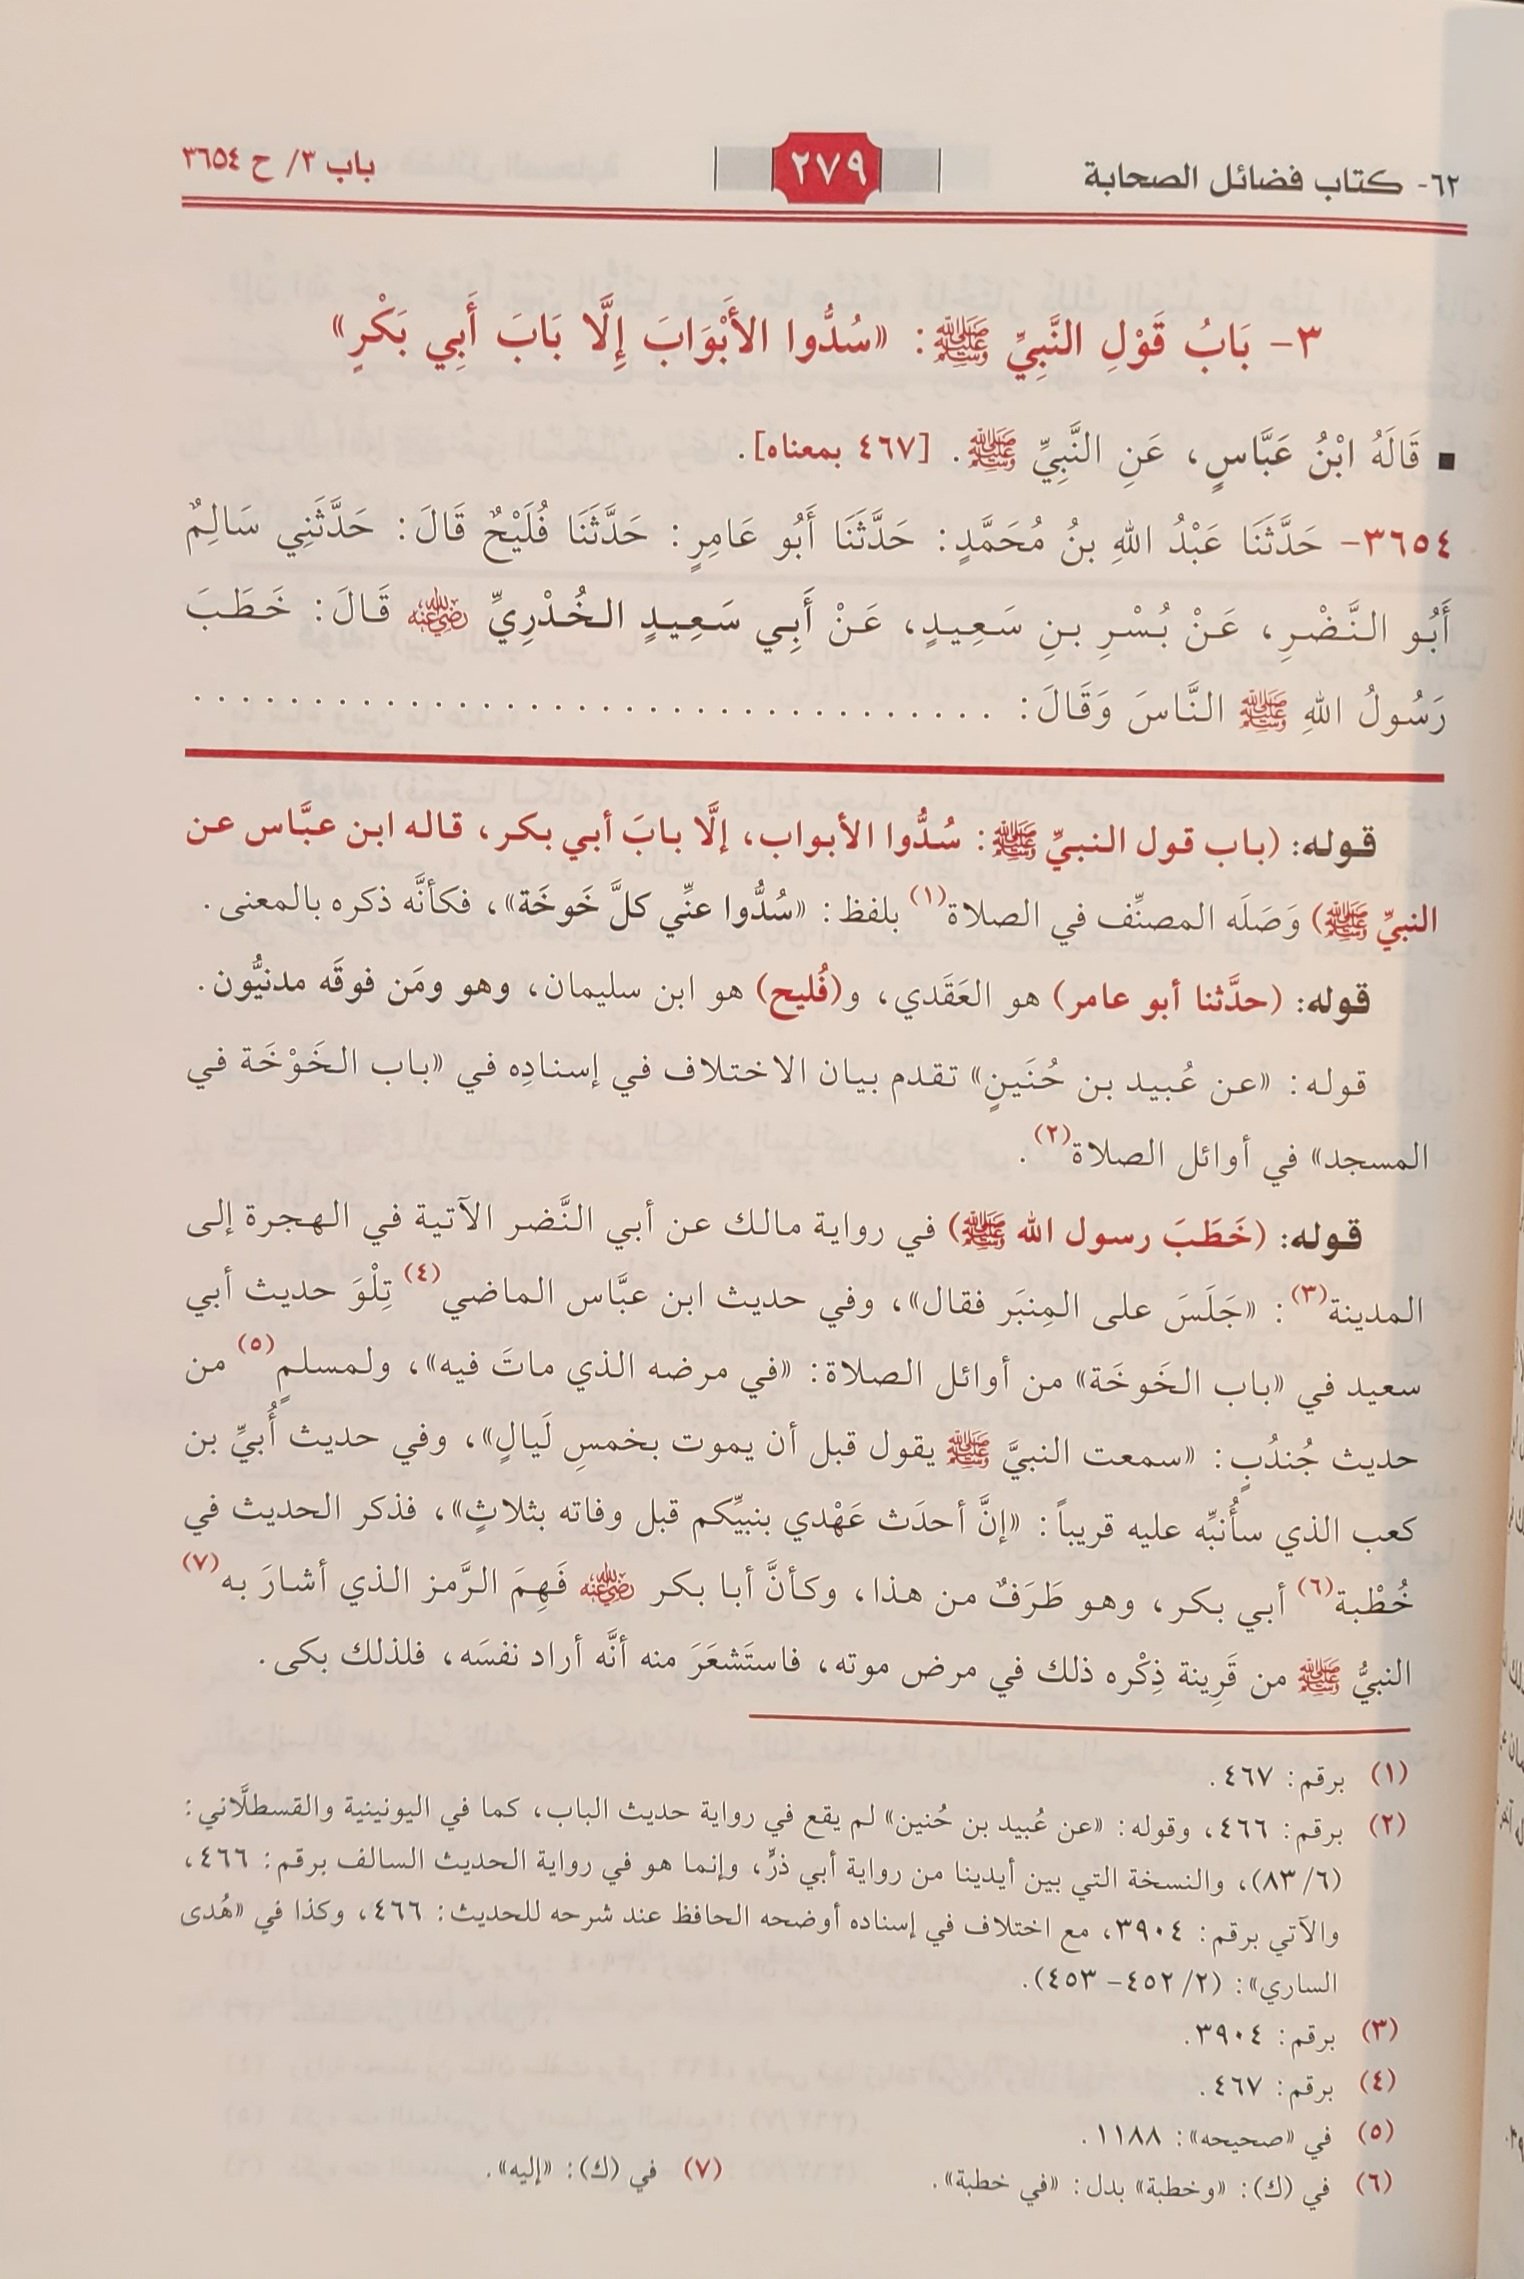 ٦٢- كتاب فضائل الصحابة
٢٧٩
باب ٣/ ح ٣٦٥٤
٣- بَابُ قَوْلِ النَّبِيِّ ﷺ: «سُدُّوا الأَبْوَابَ إِلَّا بَابَ أَبِي بَكْرٍ»
■ قَالَهُ ابْنُ عَبَّاسٍ، عَنِ النَّبِيِّ ﷺ. [٤٦٧ بمعناه].
٣٦٥٤- حَدَّثَنَا عَبْدُ اللهِ بنُ مُحَمَّدٍ: حَدَّثَنَا أَبُو عَامِرٍ: حَدَّثَنَا فُلَيْحٌ قَالَ: حَدَّثَنِي سَالِمٌ
أَبُو النَّضْرِ، عَنْ بُسْرِ بنِ سَعِيدٍ، عَنْ أَبِي سَعِيدٍ الخُدْرِيِّ رضي الله عنه قَالَ: خَطَبَ
رَسُولُ اللهِ ﷺ النَّاسَ وَقَالَ: . . . . . . . . . . . . . . . . . . . . . . . . . . . . . . . . .
قوله: (باب قول النبيِّ ﷺ: سُدُّوا الأبواب، إلَّا بابَ أبي بكر، قاله ابن عبَّاس عن
النبيِّ ﷺ) وَصَلَه المصنِّف في الصلاة(١) بلفظ: «سُدُّوا عنِّي كلَّ خَوخَة»، فكأنَّه ذكره بالمعنى.
قوله: (حدَّثنا أبو عامر) هو العَقَدي، و(فُليح) هو ابن سليمان، وهو ومَن فوقَه مدنيُّون.
قوله: «عن عُبيد بن حُنَينٍ» تقدم بيان الاختلاف في إسنادِه في «باب الخَوْخَة في
المسجد» في أوائل الصلاة(٢).
قوله: (خَطَبَ رسول الله ﷺ) في رواية مالك عن أبي النَّضر الآتية في الهجرة إلى
المدينة(٣): «جَلَسَ على المِنبَر فقال»، وفي حديث ابن عبَّاس الماضي(٤) تِلْوَ حديث أبي
سعيد في «باب الخَوخَة» من أوائل الصلاة: «في مرضه الذي ماتَ فيه»، ولمسلمٍ(٥) من
حديث جُندُبٍ: «سمعت النبيَّ ﷺ يقول قبل أن يموت بخمسِ لَيالٍ»، وفي حديث أُبيِّ بن
كعب الذي سأُنبِّه عليه قريباً: «إنَّ أحدَث عَهْدي بنبيِّكم قبل وفاته بثلاثٍ»، فذكر الحديث في
خُطْبة(٦) أبي بكر، وهو طَرَفٌ من هذا، وكأنَّ أبا بكر رضي الله عنه فَهِمَ الرَّمز الذي أشارَ به(٧)
النبيُّ ﷺ من قَرِينة ذِكْره ذلك في مرض موته، فاستَشعَرَ منه أنَّه أراد نفسَه، فلذلك بكى.
(١) برقم: ٤٦٧.
(٢) برقم: ٤٦٦، وقوله: «عن عُبيد بن حُنين» لم يقع في رواية حديث الباب، كما في اليونينية والقسطلَّاني:
(٦/ ٨٣)، والنسخة التي بين أيدينا من رواية أبي ذرٍّ، وإنما هو في رواية الحديث السالف برقم: ٤٦٦،
والآتي برقم: ٣٩٠٤، مع اختلاف في إسناده أوضحه الحافظ عند شرحه للحديث: ٤٦٦، وكذا في «هُدى
الساري»: (٢/ ٤٥٢- ٤٥٣).
(٣) برقم: ٣٩٠٤.
(٤) برقم: ٤٦٧.
(٥) في «صحيحه»: ١١٨٨.
(٦) في (ك): «وخطبة» بدل: «في خطبة». (٧) في (ك): «إليه».